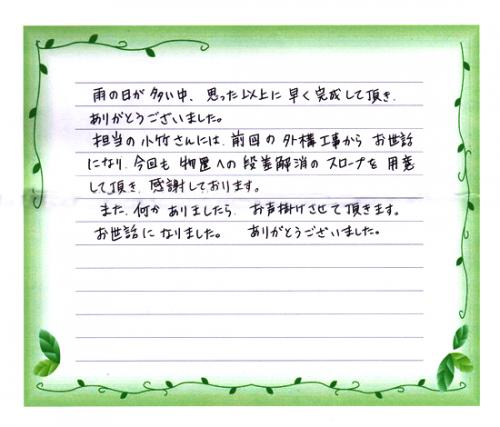 雨の日が多い中、思った以上に早く完成して頂き、
ありがとうございました。
担当の小竹さんには、前回の外構工事からお世話
になり、今回も物置への段差解消のスロープを用意
して頂き、感謝しております。
また、何かありましたら、お声掛けさせて頂きます。
お世話になりました。 ありがとうございました。